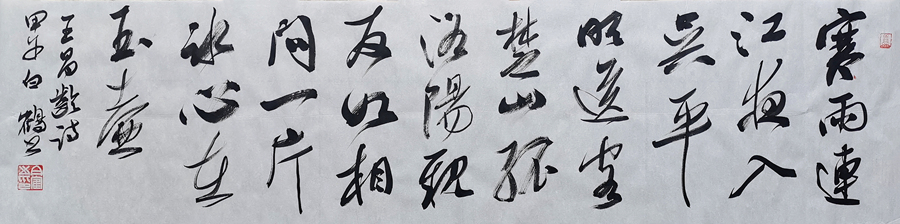 寒雨連
江夜入
吳平
明送客
楚山孤
洛陽親
友如相
問一片
冰心在
玉壺
王昌齡詩
甲午白鶴書